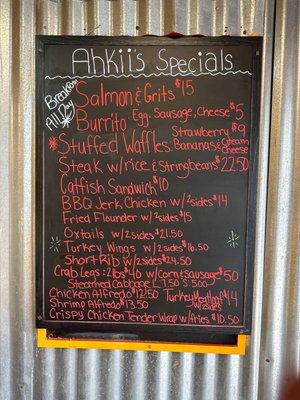 Ahkii's Specials
Breakfast
All Day
Salmon & Grits $15
Burrito Egg, Sausage, Cheese $5
Strawberry $9
*Stuffed Waffles Bananas & Cream Cheese
Steak w/rice & Stringbeans $22.50
Catfish Sandwich $10
BBQ Jerk Chicken w/2sides $14
Fried Flounder w/2sides $15
Oxtails w/2sides $21.50
Turkey Wings w/2sides $16.50
Short Rib w/2sides $24.50
Crab Legs: 2lbs $40 w/corn & sausage $50
Steamed Cabbage L 7.50 S 5.00
Chicken Alfredo $12.50 Turkey Meatloaf w/2sides $14
Shrimp Alfredo $13.50
Crispy Chicken Tender Wrap w/fries $10.50